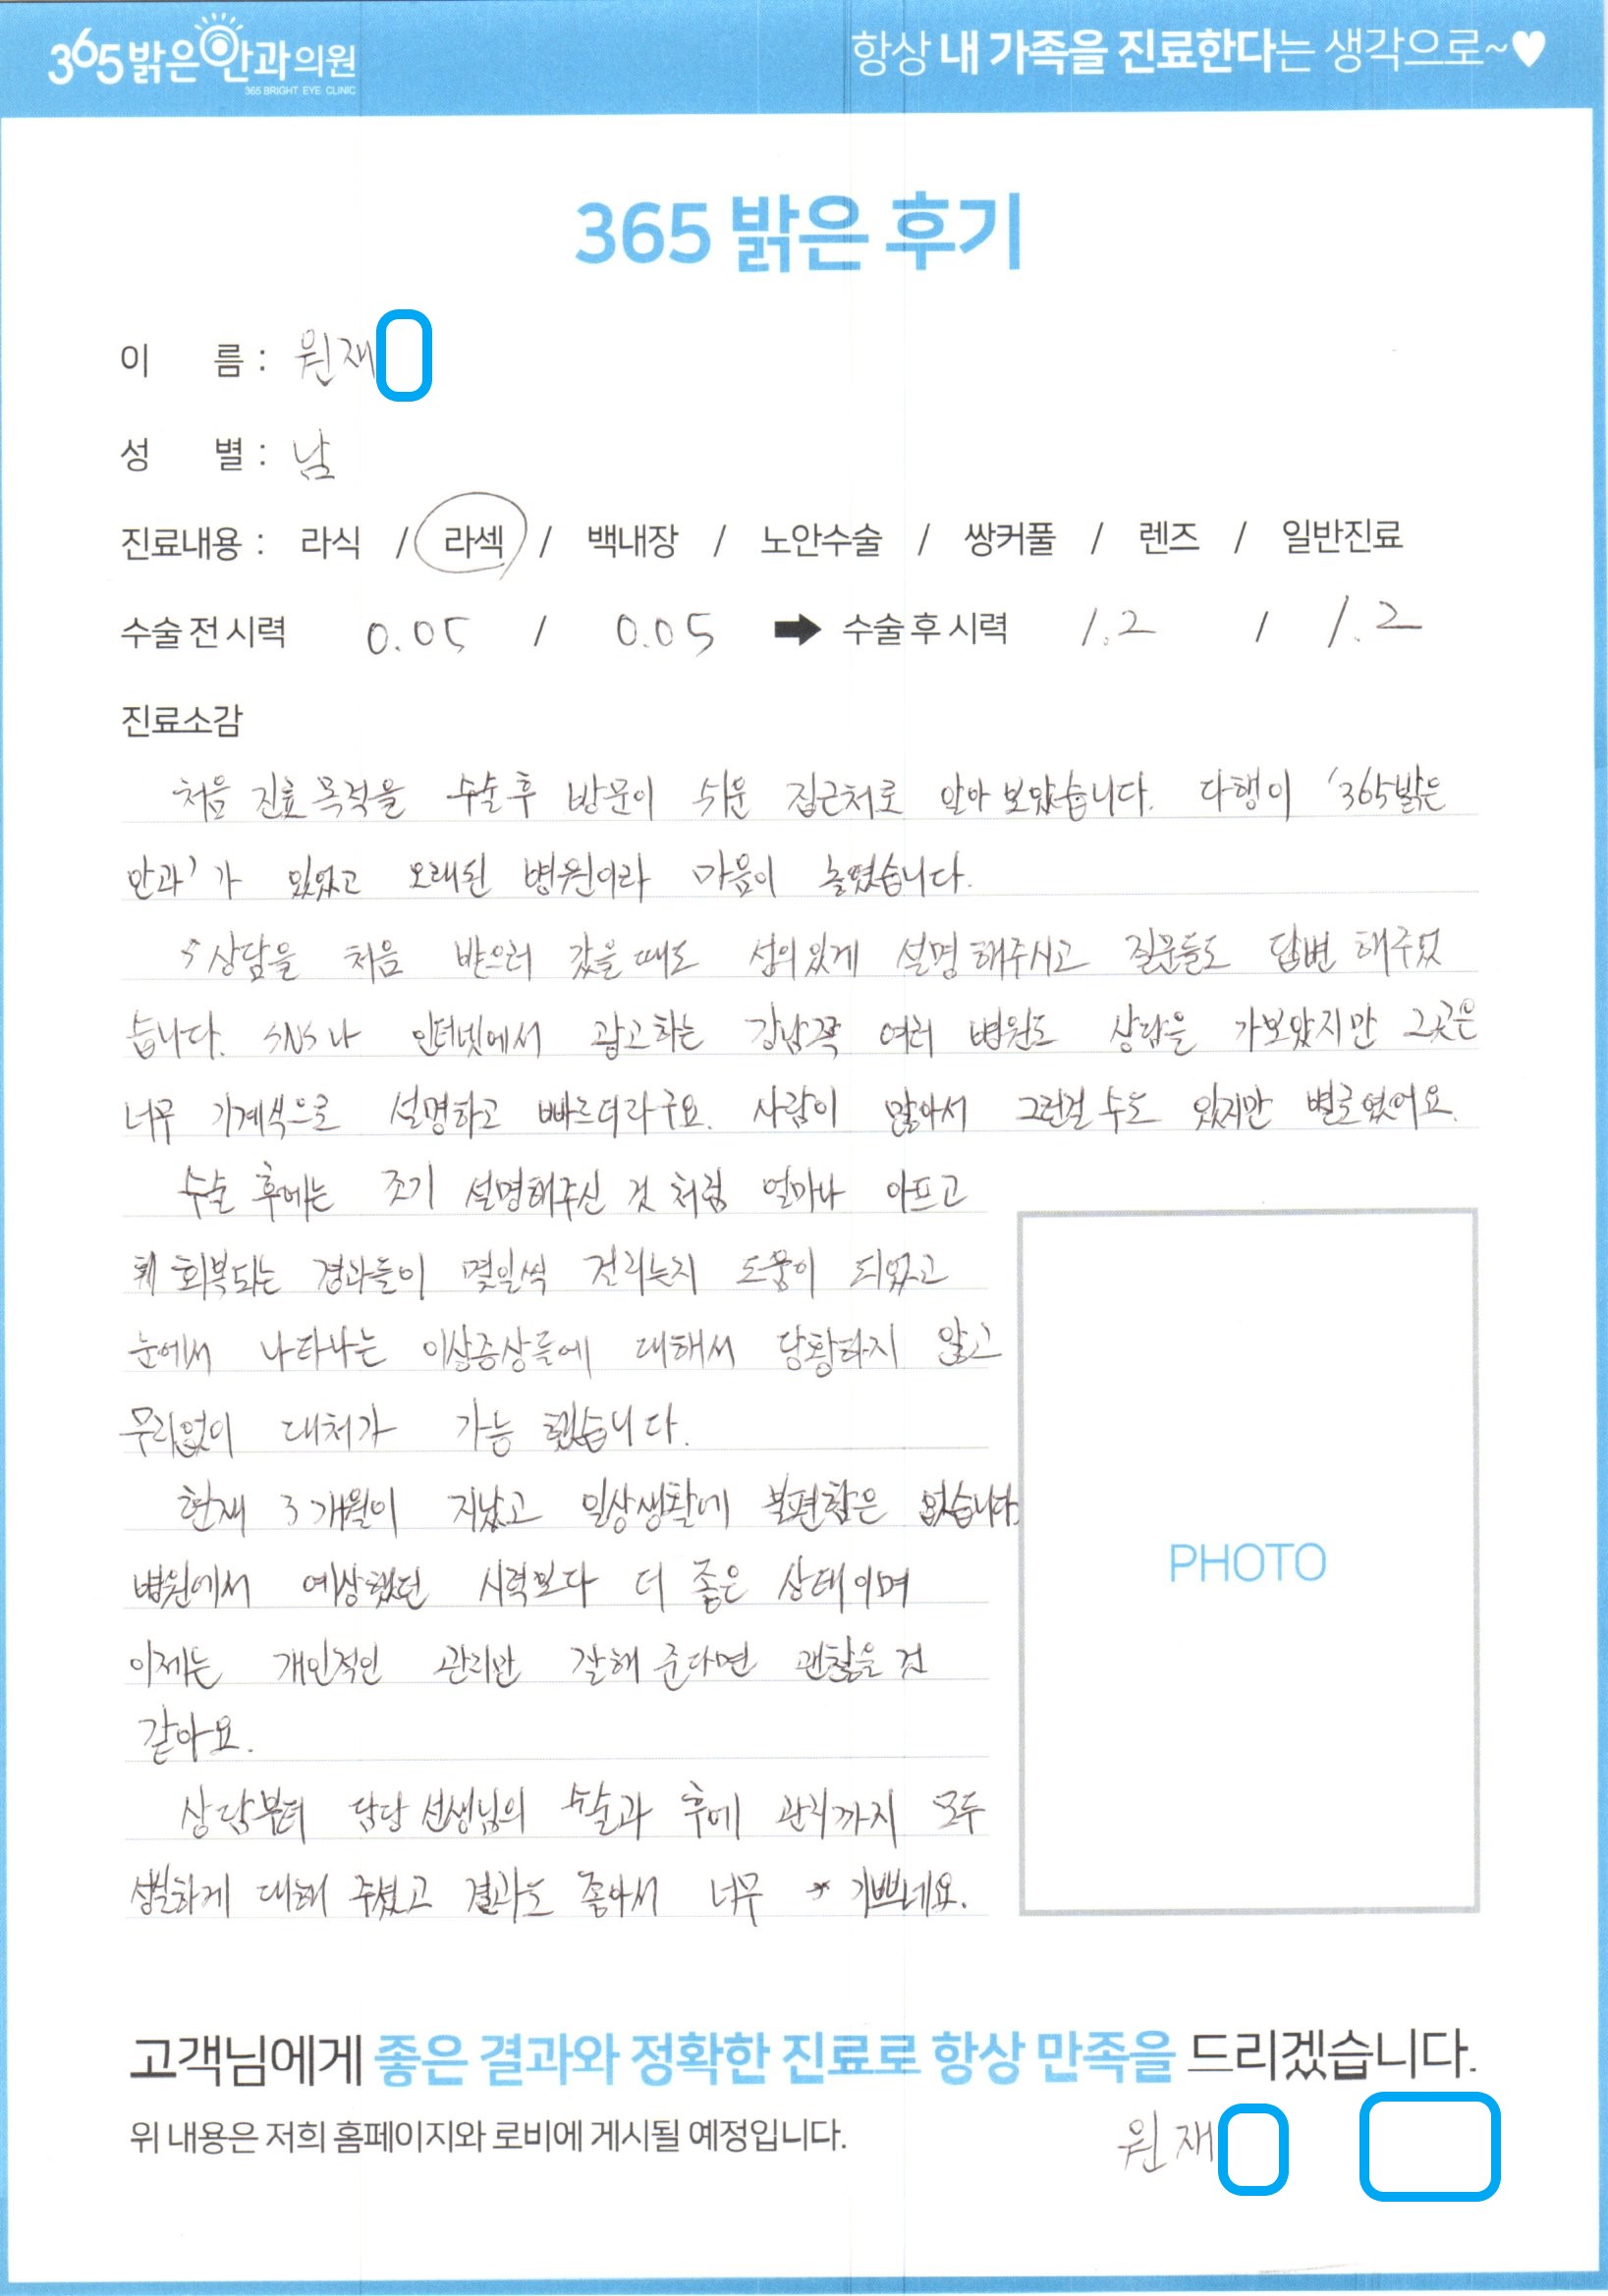 365밝은안과의원
365 BRIGHT EYE CLINIC
항상 내 가족을 진료한다는 생각으로~♥
365 밝은 후기
이 름 : 원재
성 별 : 남
진료내용 : 라식 / 라섹 / 백내장 / 노안수술 / 쌍커풀 / 렌즈 / 일반진료
수술 전 시력 0.05 / 0.05 ➡ 수술 후 시력 1.2 / 1.2
진료소감
처음 진료 목적을 수술후 방문이 쉬운 집근처로 알아 보았습니다. 다행이 '365밝은
안과'가 있었고 오래된 병원이라 마음이 놓였습니다.
상담을 처음 받으러 갔을 때도 섬의있게 설명해주시고 질문들도 답변 해주었
습니다. SNS나 인터넷에서 광고하는 강남쪽 여러 병원도 상담을 가보았지만 그곳은
너무 기계식으로 설명하고 빠르더라구요. 사람이 많아서 그런걸 수도 있지만 별로였어요.
수술 후에는 초기 설명해주신 것 처럼 얼마나 아프고
회복되는 경과들이 몇일씩 걸리는지 도움이 되었고
눈에서 나타나는 이상증상들에 대해서 당황하지 않고
무리없이 대처가 가능 했습니다.
현재 3개월이 지났고 일상생활에 불편함은 없습니다.
병원에서 예상했던 시력보다 더 좋은 상태이며
이제는 개인적인 관리만 잘해 준다면 괜찮을 것
같아요.
상담부터 담당 선생님의 수술과 후에 관리까지 모두
성실하게 대해 주셨고 결과도 좋아서 너무 기쁘네요.
PHOTO
고객님에게 좋은 결과와 정확한 진료로 항상 만족을 드리겠습니다.
위 내용은 저희 홈페이지와 로비에 게시될 예정입니다.
원재